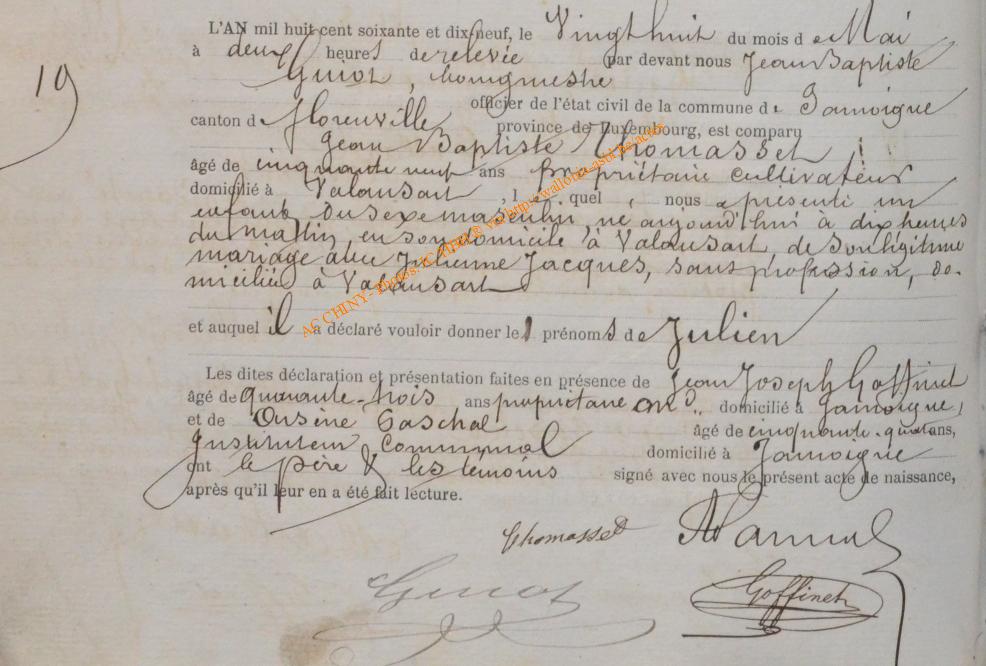 19
L'AN mil huit cent soixante et dix-neuf, le Vingthuit du mois d e Mai
à deux heures de relevée par devant nous Jean Baptiste
Guiot, bourgmestre
officier de l'état civil de la commune de Jamoigne
canton de Florenville province de Luxembourg, est comparu
Jean Baptiste Thomasset,
âgé de cinquante neuf ans propriétaire cultivateur
domicilié à Valansart, l quel, nous a présenté un
enfant du sexe masculin, né aujourd'hui à dix heures
du matin, en son domicile à Valansart, de son légitime
mariage avec Julienne Jacques, sans profession, do-
miciliée à Valansart
et auquel il a déclaré vouloir donner le prénoms de Julien
Les dites déclaration et présentation faites en présence de Jean Joseph Goffinet
âgé de quarante-trois ans propriétaire domicilié à Jamoigne,
et de Arsène Paschal âgé de cinquante-quatre ans,
Instituteur Communal domicilié à Jamoigne
ont le père & les témoins signé avec nous le présent acte de naissance,
après qu'il leur en a été fait lecture.
Thomasset
Guiot Goffinet
AC CHINY - Photos: IC ABLE via http://wallonia-asbl.be/actes